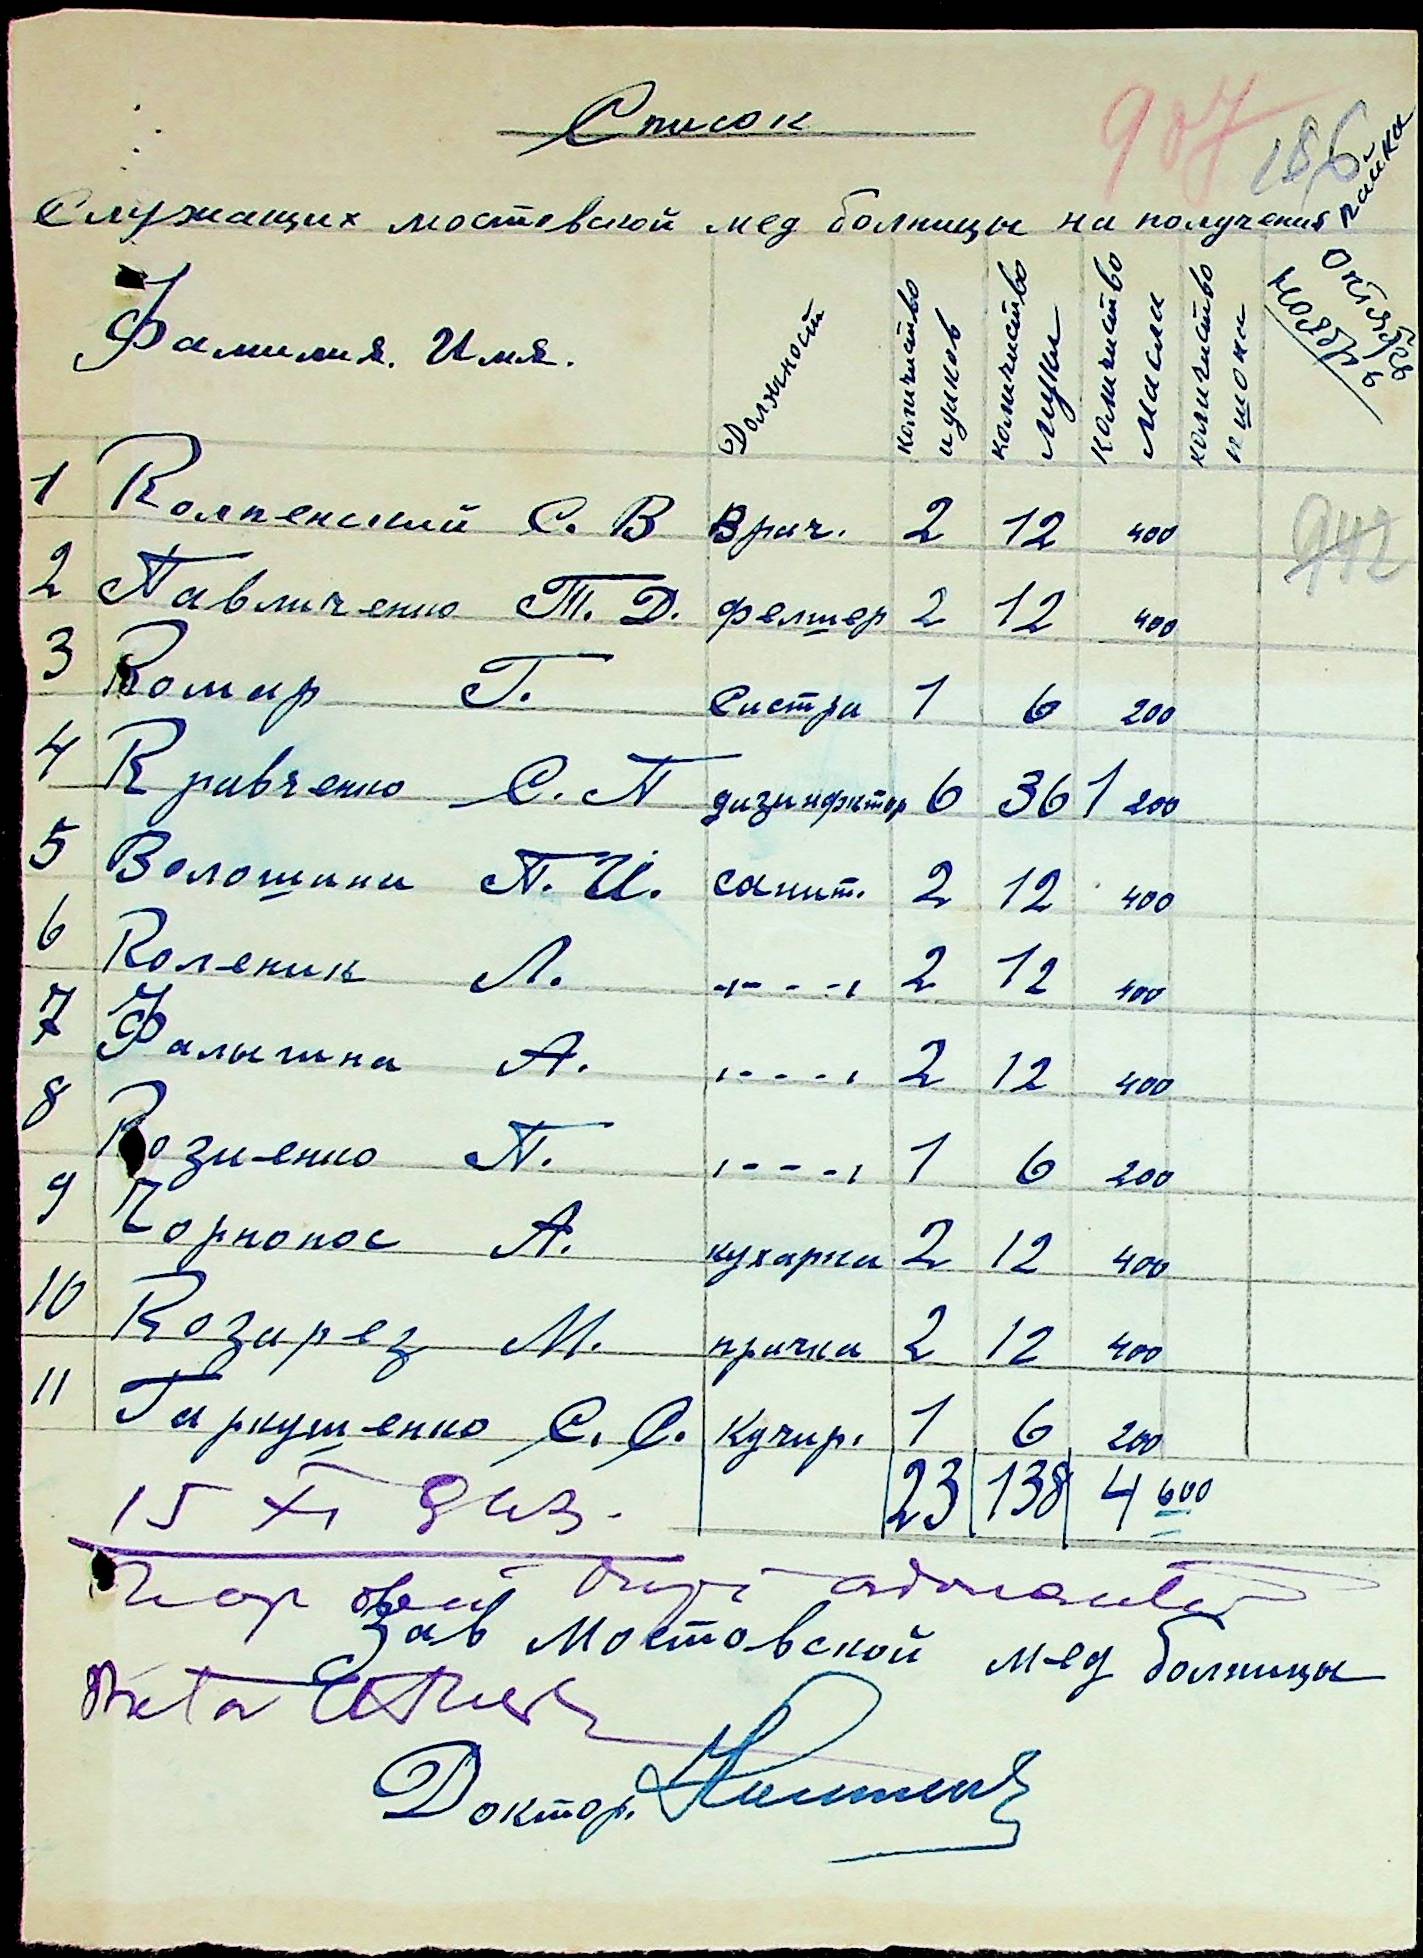 Список
907
186
Служащих мостевской мед болницы на получения пайка
октябрь
ноябрь
Фамилия. Имя. Должност количиство количиство муки количиство масла количиство пшона
942
1 Колпенский С. В Врач. 2 12 400
2 Павличенко Т. Д. фелшер 2 12 400
3 Комар Г. Систра 1 6 200
4 Кравченко С. П дизинфктор 6 36 1 200
5 Волошина П. И. санит. 2 12 400
6 Коленик Л. -"- - -" 2 12 400
7 Фалышна А. "- - - -" 2 12 400
8 Козиенко П. "- - - -" 1 6 200
9 Чорнонос А. кухарка 2 12 400
10 Козарез М. прачка 2 12 400
11 Гаркушенко С. С. Кучир. 1 6 200
23 138 4 600
15 XI
Зав Мостовской мед болницы
Доктор.